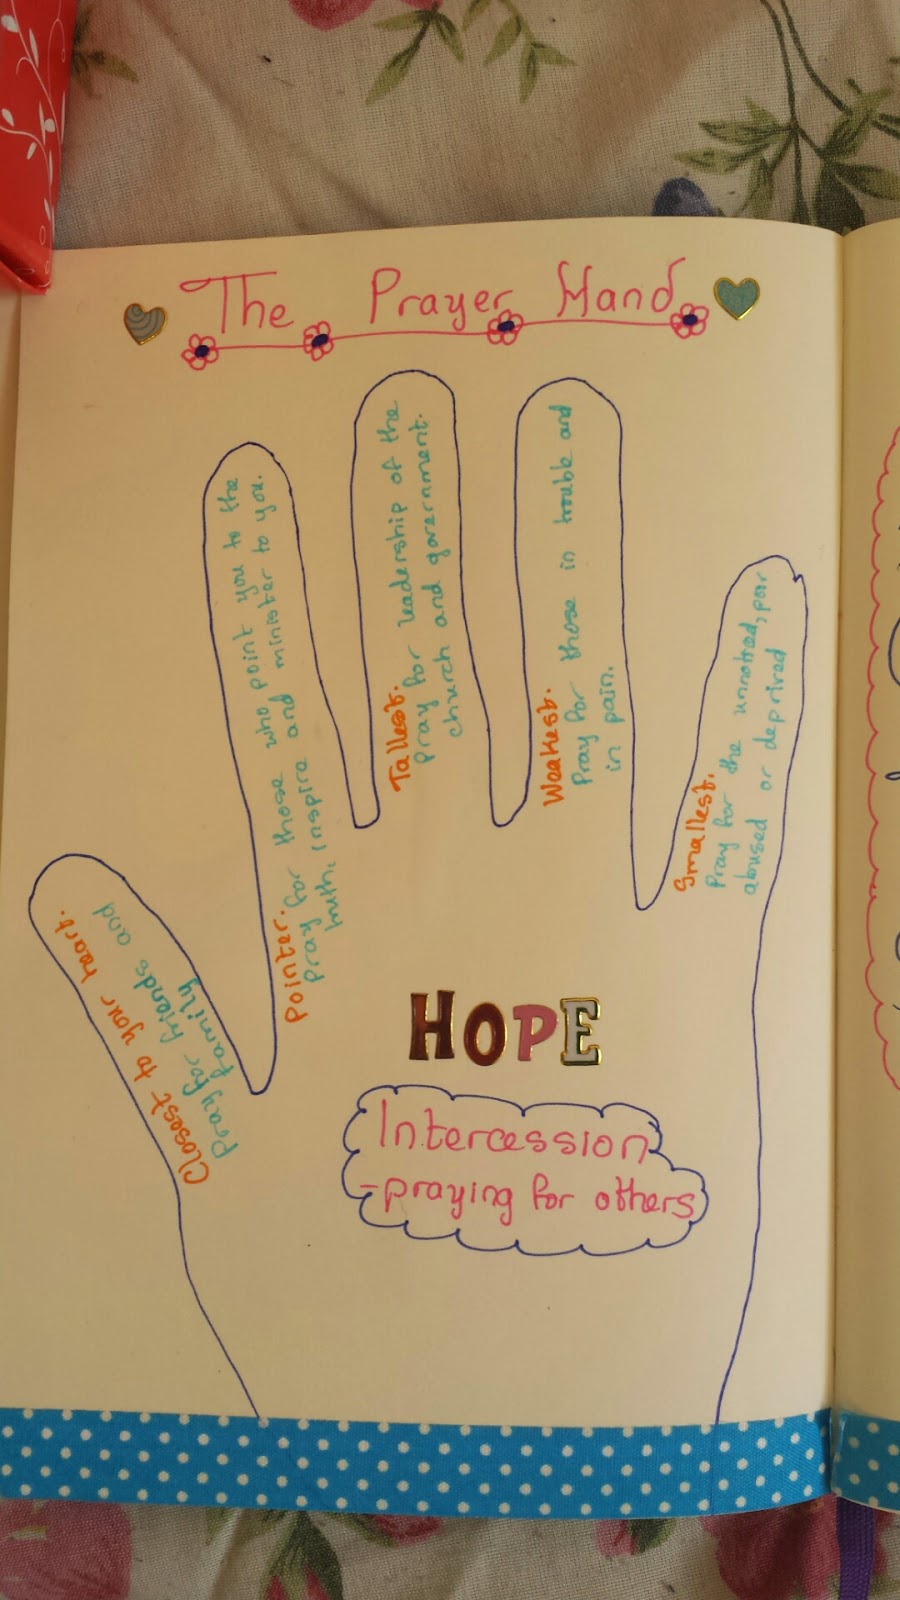 The Prayer Hand
Closest to your heart.
Pray for friends and
family
Pointer.
Pray for those who point you to the
truth, inspire and minister to you.
Tallest.
Pray for leadership of the
church and government.
Weakest.
Pray for those in trouble and
in pain.
Smallest.
Pray for the unnoticed, poor
abused or deprived
HOPE
Intercession
-praying for others